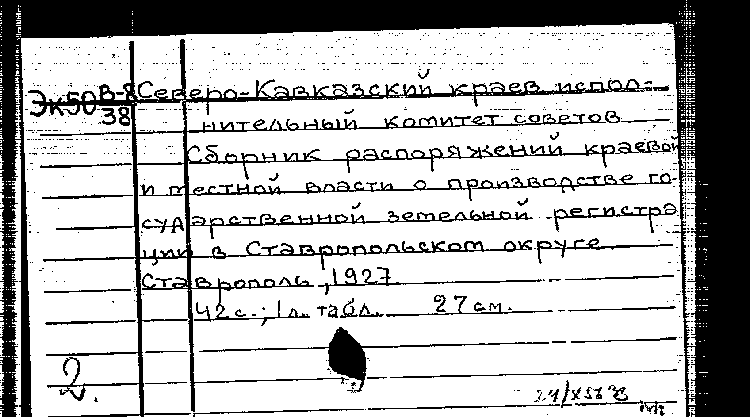 Эк50 В-8/38
Северо-Кавказский краев испол-
нительный комитет советов
Сборник распоряжений краевой
и местной власти о производстве го-
сударственной земельной регистра
ции в Ставропольском округе
Ставрополь, 1927
42 с.; 1 л. табл. 27 см.
2.